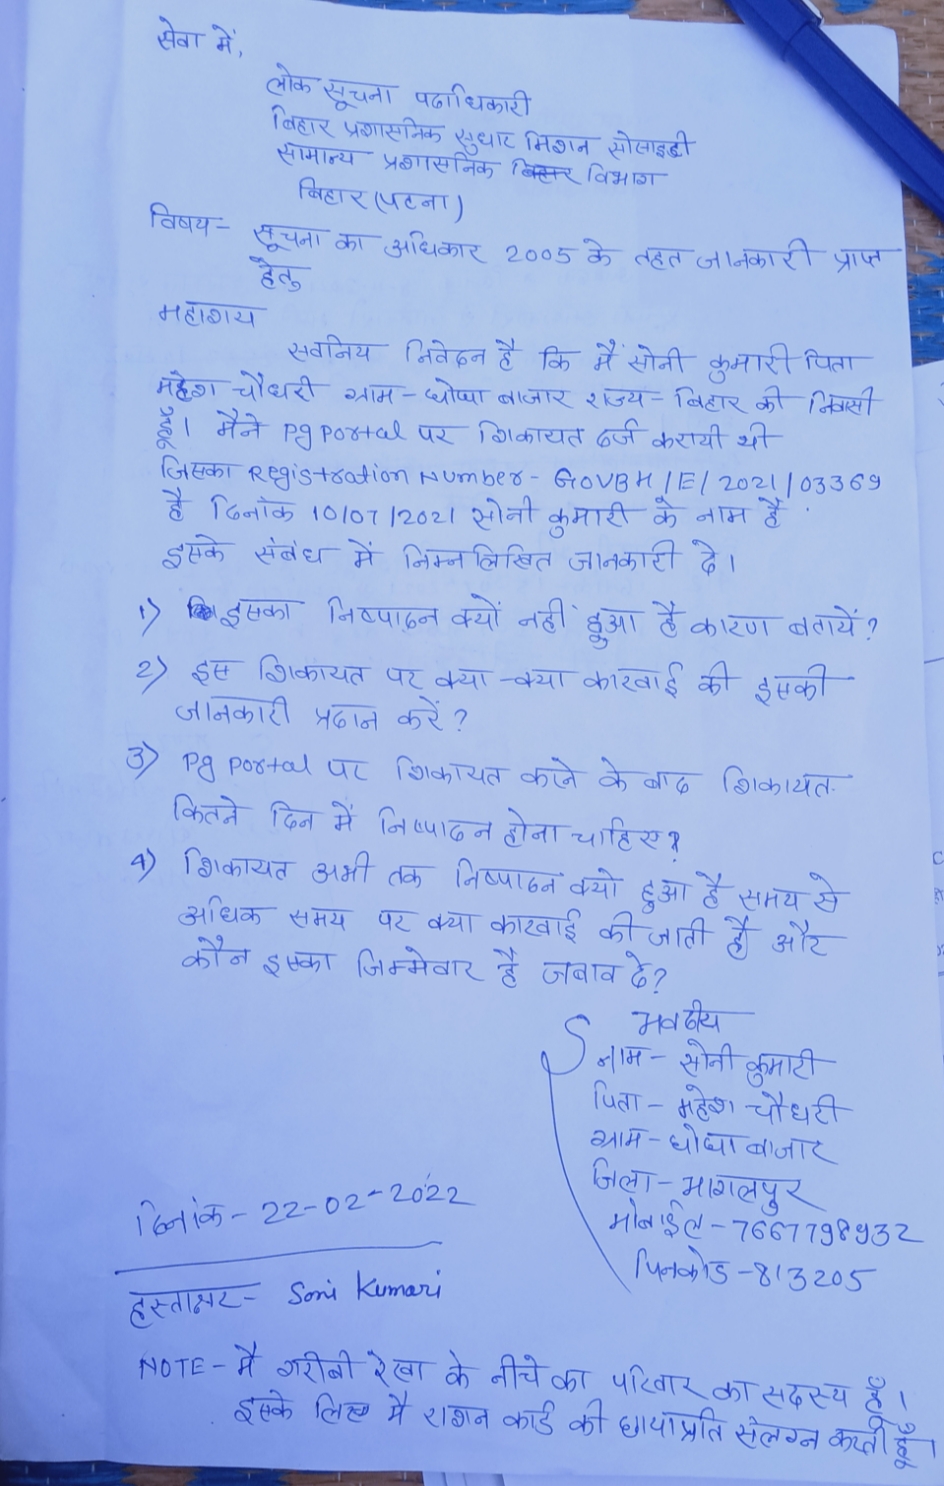 सेवा में,
लोक सूचना पदाधिकारी
बिहार प्रशासनिक सुधार मिशन सोसाइटी
सामान्य प्रशासनिक विभाग
बिहार (पटना)
विषय- सूचना का अधिकार 2005 के तहत जानकारी प्राप्त
हेतु
महाशय
सवनिय निवेदन है कि मैं सोनी कुमारी पिता
महेश चौधरी ग्राम - घोघा बाजार राज्य - बिहार की निवासी
हूँ। मैने pg portal पर शिकायत दर्ज करायी थी
जिसका Registration Number - GOVBH/E/2021/03369
है दिनांक 10/07/2021 सोनी कुमारी के नाम है
इसके संबंध में निम्नलिखित जानकारी दे।
1) इसका निष्पादन क्यों नहीं हुआ है कारण बतायें?
2) इस शिकायत पर क्या-क्या कारवाई की इसकी
जानकारी प्रदान करें?
3) Pg portal पर शिकायत करने के बाद शिकायत
कितने दिन में निष्पादन होना चाहिए?
4) शिकायत अभी तक निष्पादन क्यो हुआ है समय से
अधिक समय पर क्या कारवाई की जाती है और
कौन इसका जिम्मेवार है जबाव दे?
भवदीय
नाम - सोनी कुमारी
पिता - महेश चौधरी
ग्राम - घोघा बाजार
जिला - भागलपुर
मोबाईल - 7667798932
पिनकोड - 813205
दिनांक - 22-02-2022
हस्ताक्षर - Soni Kumari
NOTE - मै गरीबी रेखा के नीचे का परिवार का सदस्य हूँ।
इसके लिए मै राशन कार्ड की छायाप्रति संलग्न करती हूँ।